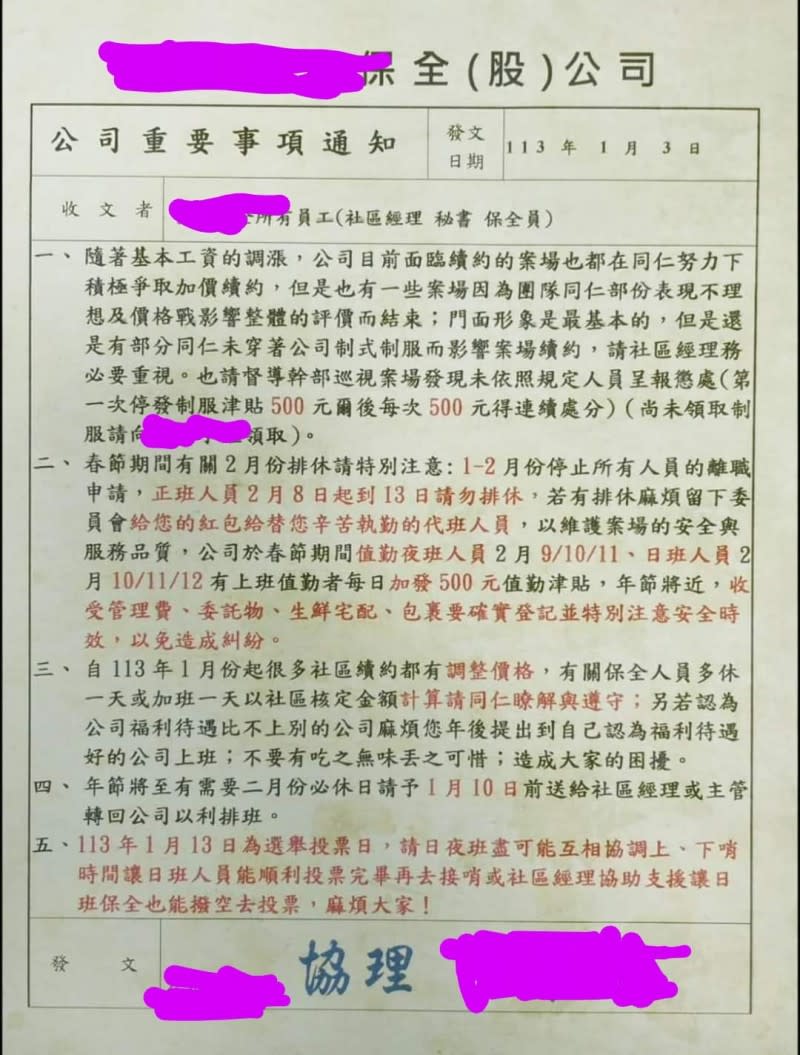 保全(股)公司
公司重要事項通知
發文
日期
113 年 1 月 3 日
收文者
所有員工(社區經理 秘書 保全員)
一、隨著基本工資的調漲，公司目前面臨續約的案場也都在同仁努力下
積極爭取加價續約，但是也有一些案場因為團隊同仁部份表現不理
想及價格戰影響整體的評價而結束；門面形象是最基本的，但是還
是有部分同仁未穿著公司制式制服而影響案場續約，請社區經理務
必要重視。也請督導幹部巡視案場發現未依照規定人員呈報懲處(第
一次停發制服津貼 500 元爾後每次 500 元得連續處分)(尚未領取制
服請向領取)。
二、春節期間有關 2 月份排休請特別注意：1-2 月份停止所有人員的離職
申請，正班人員 2 月 8 日起到 13 日請勿排休，若有排休麻煩留下委
員會給您的紅包給替您辛苦執勤的代班人員，以維護案場的安全與
服務品質，公司於春節期間值勤夜班人員 2 月 9/10/11、日班人員 2
月 10/11/12 有上班值勤者每日加發 500 元值勤津貼，年節將近，收
受管理費、委託物、生鮮宅配、包裹要確實登記並特別注意安全時
效，以免造成糾紛。
三、自 113 年 1 月份起很多社區續約都有調整價格，有關保全人員多休
一天或加班一天以社區核定金額計算請同仁瞭解與遵守；另若認為
公司福利待遇比不上別的公司麻煩您年後提出到自己認為福利待遇
好的公司上班；不要有吃之無味丟之可惜；造成大家的困擾。
四、年節將至有需要二月份必休日請予 1 月 10 日前送給社區經理或主管
轉回公司以利排班。
五、113 年 1 月 13 日為選舉投票日，請日夜班盡可能互相協調上、下哨
時間讓日班人員能順利投票完畢再去接哨或社區經理協助支援讓日
班保全也能撥空去投票，麻煩大家！
發文
協理